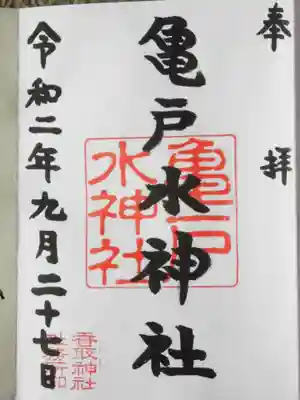 奉拝
亀戸水神社
令和二年九月二十七日
亀戸
水神社
香取神社
社務所印